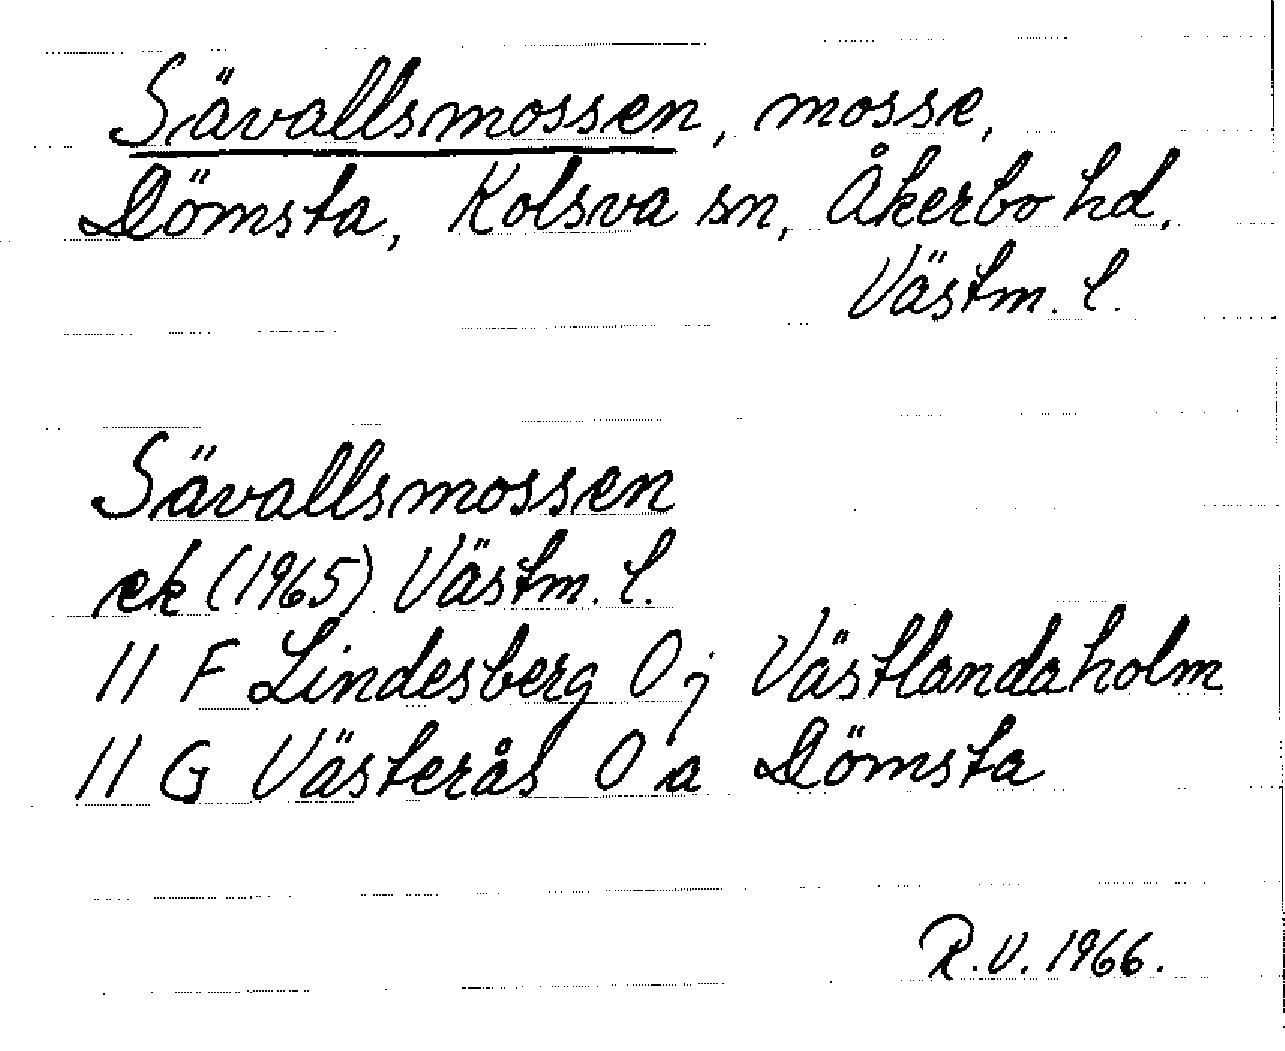 Sävallsmossen, mosse,
Dömsta, Kolsva sn, Åkerbo hd,
Västm. l.
Sävallsmossen
ek (1965) Västm. l.
11 F Lindesberg 0 j Västlandaholm
11 G Västerås 0 a Dömsta
R.V. 1966.